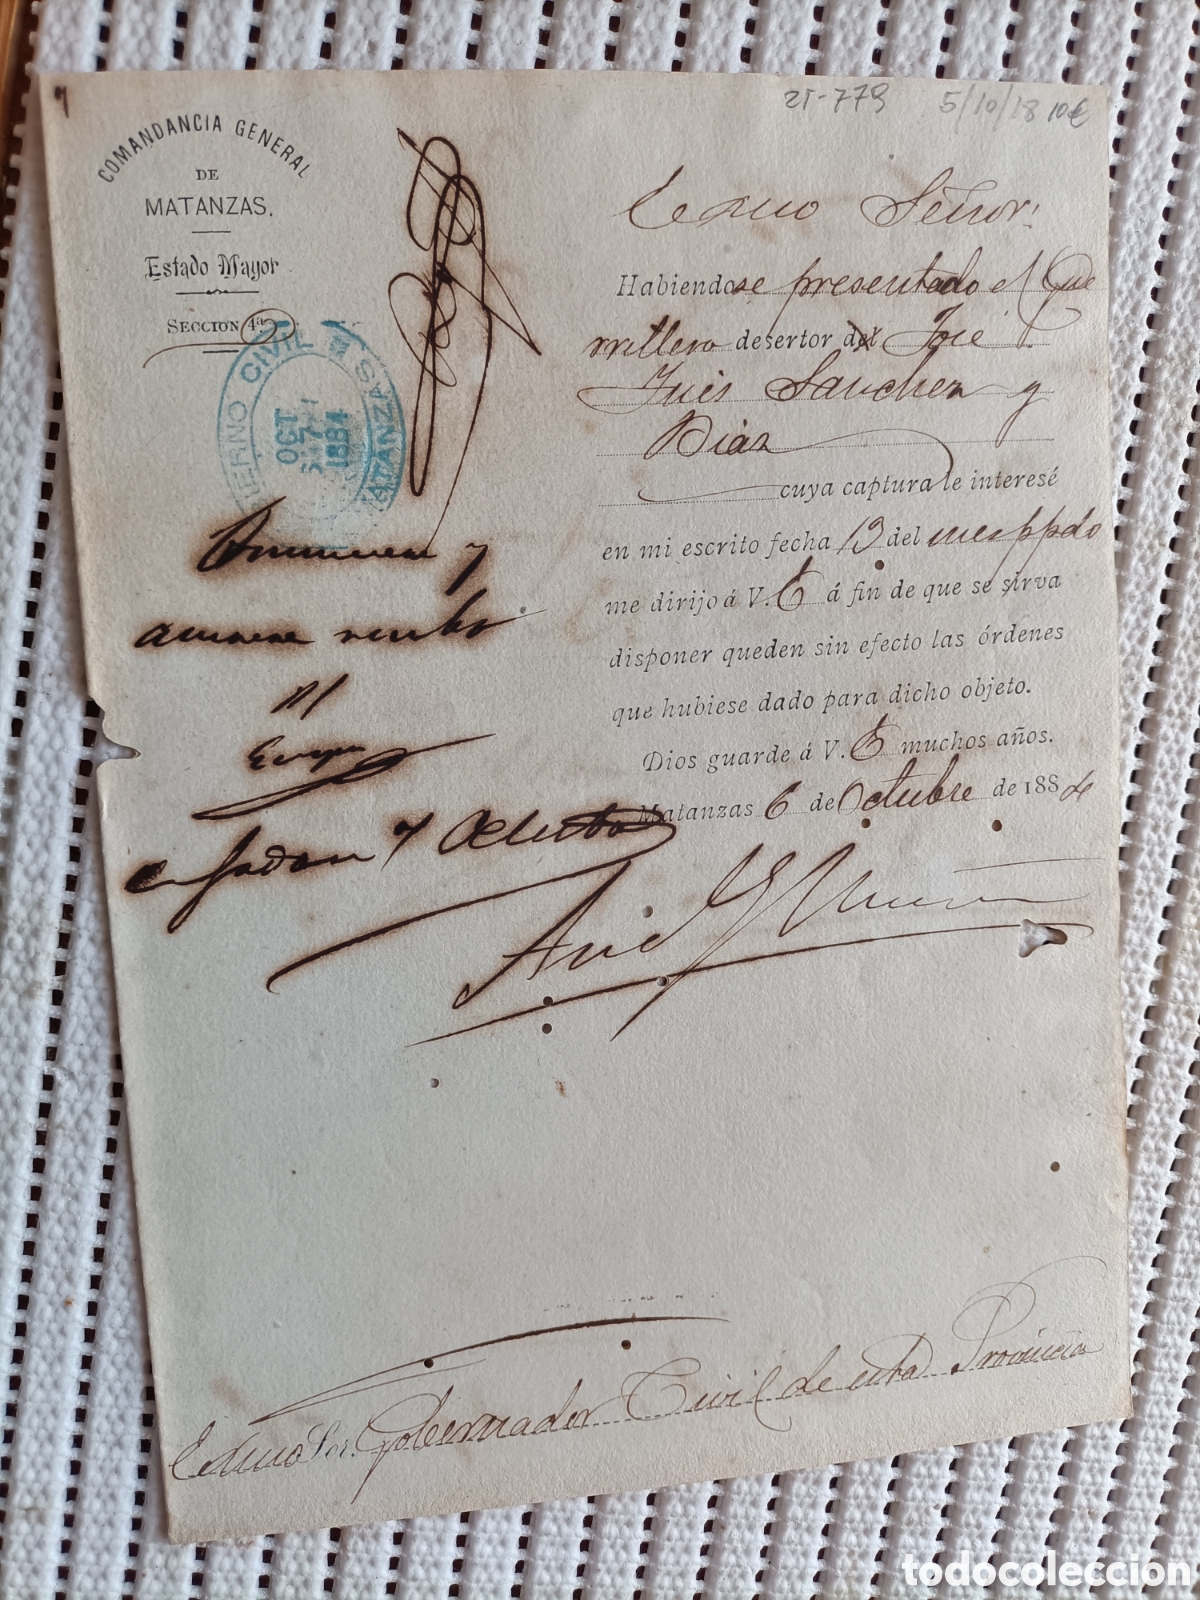 21-779 5/10/18 10€
COMANDANCIA GENERAL
DE
MATANZAS.
Estado Mayor
SECCION 4ª
GOBIERNO CIVIL MATANZAS
OCT
7
1884
Exmo Señor:
Habiendose presentado el Gue
rrillero desertor del José
Inés Sanchez y
Diaz
cuya captura le interesé
en mi escrito fecha 13 del mes ppdo
me dirijo á V. E á fin de que se sirva
disponer queden sin efecto las órdenes
que hubiese dado para dicho objeto.
Dios guarde á V. E muchos años.
Matanzas 6 de Octubre de 1884
y
acusese recibo
7 Octubre
Exmo Sor. Gobernador Civil de esta Provincia
todocoleccion